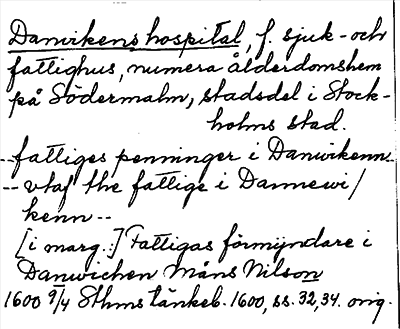 Danvikens hospital, f. sjuk- och
fattighus, numera ålderdomshem
på Södermalm, stadsdel i Stock-
holms stad.
--fattiges penninger i Danwikenn
-- vtaf the fattige i Dannewi/
kenn --
[i marg.:] Fattigas förmyndare i
Danwichen Måns Nilson
1600 9/4 Sthms tänkeb. 1600, ss. 32, 34. orig.